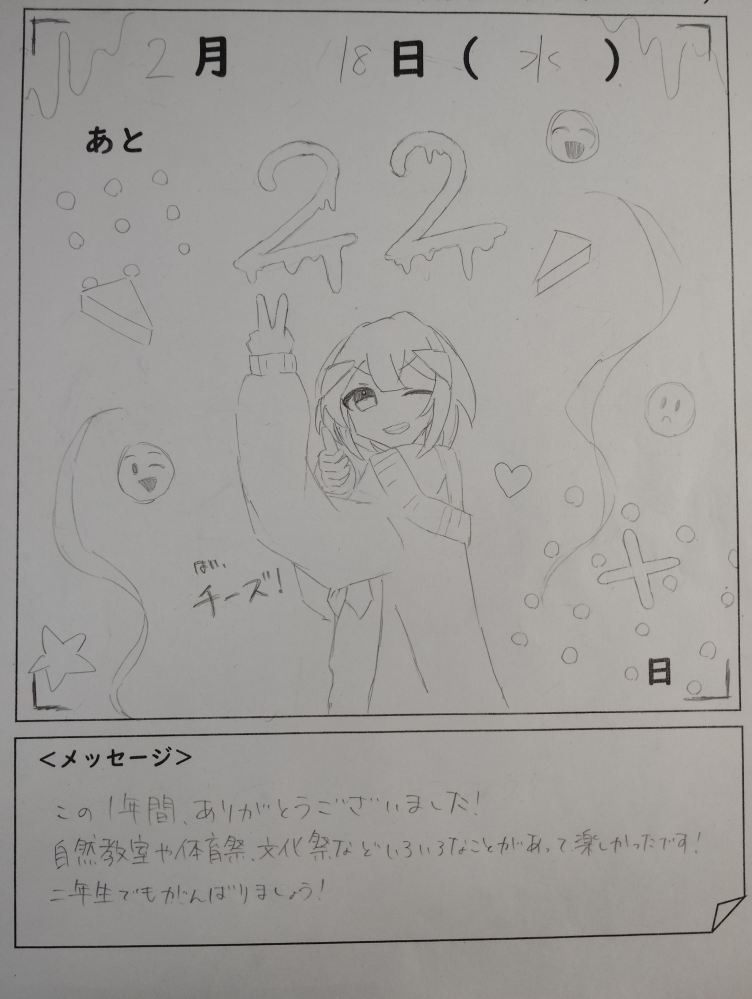 2月 18日(水)
あと
22
はい、
チーズ!
日
<メッセージ>
この1年間、ありがとうございました!
自然教室や体育祭、文化祭などいろいろなことがあって楽しかったです!
二年生でもがんばりましょう!